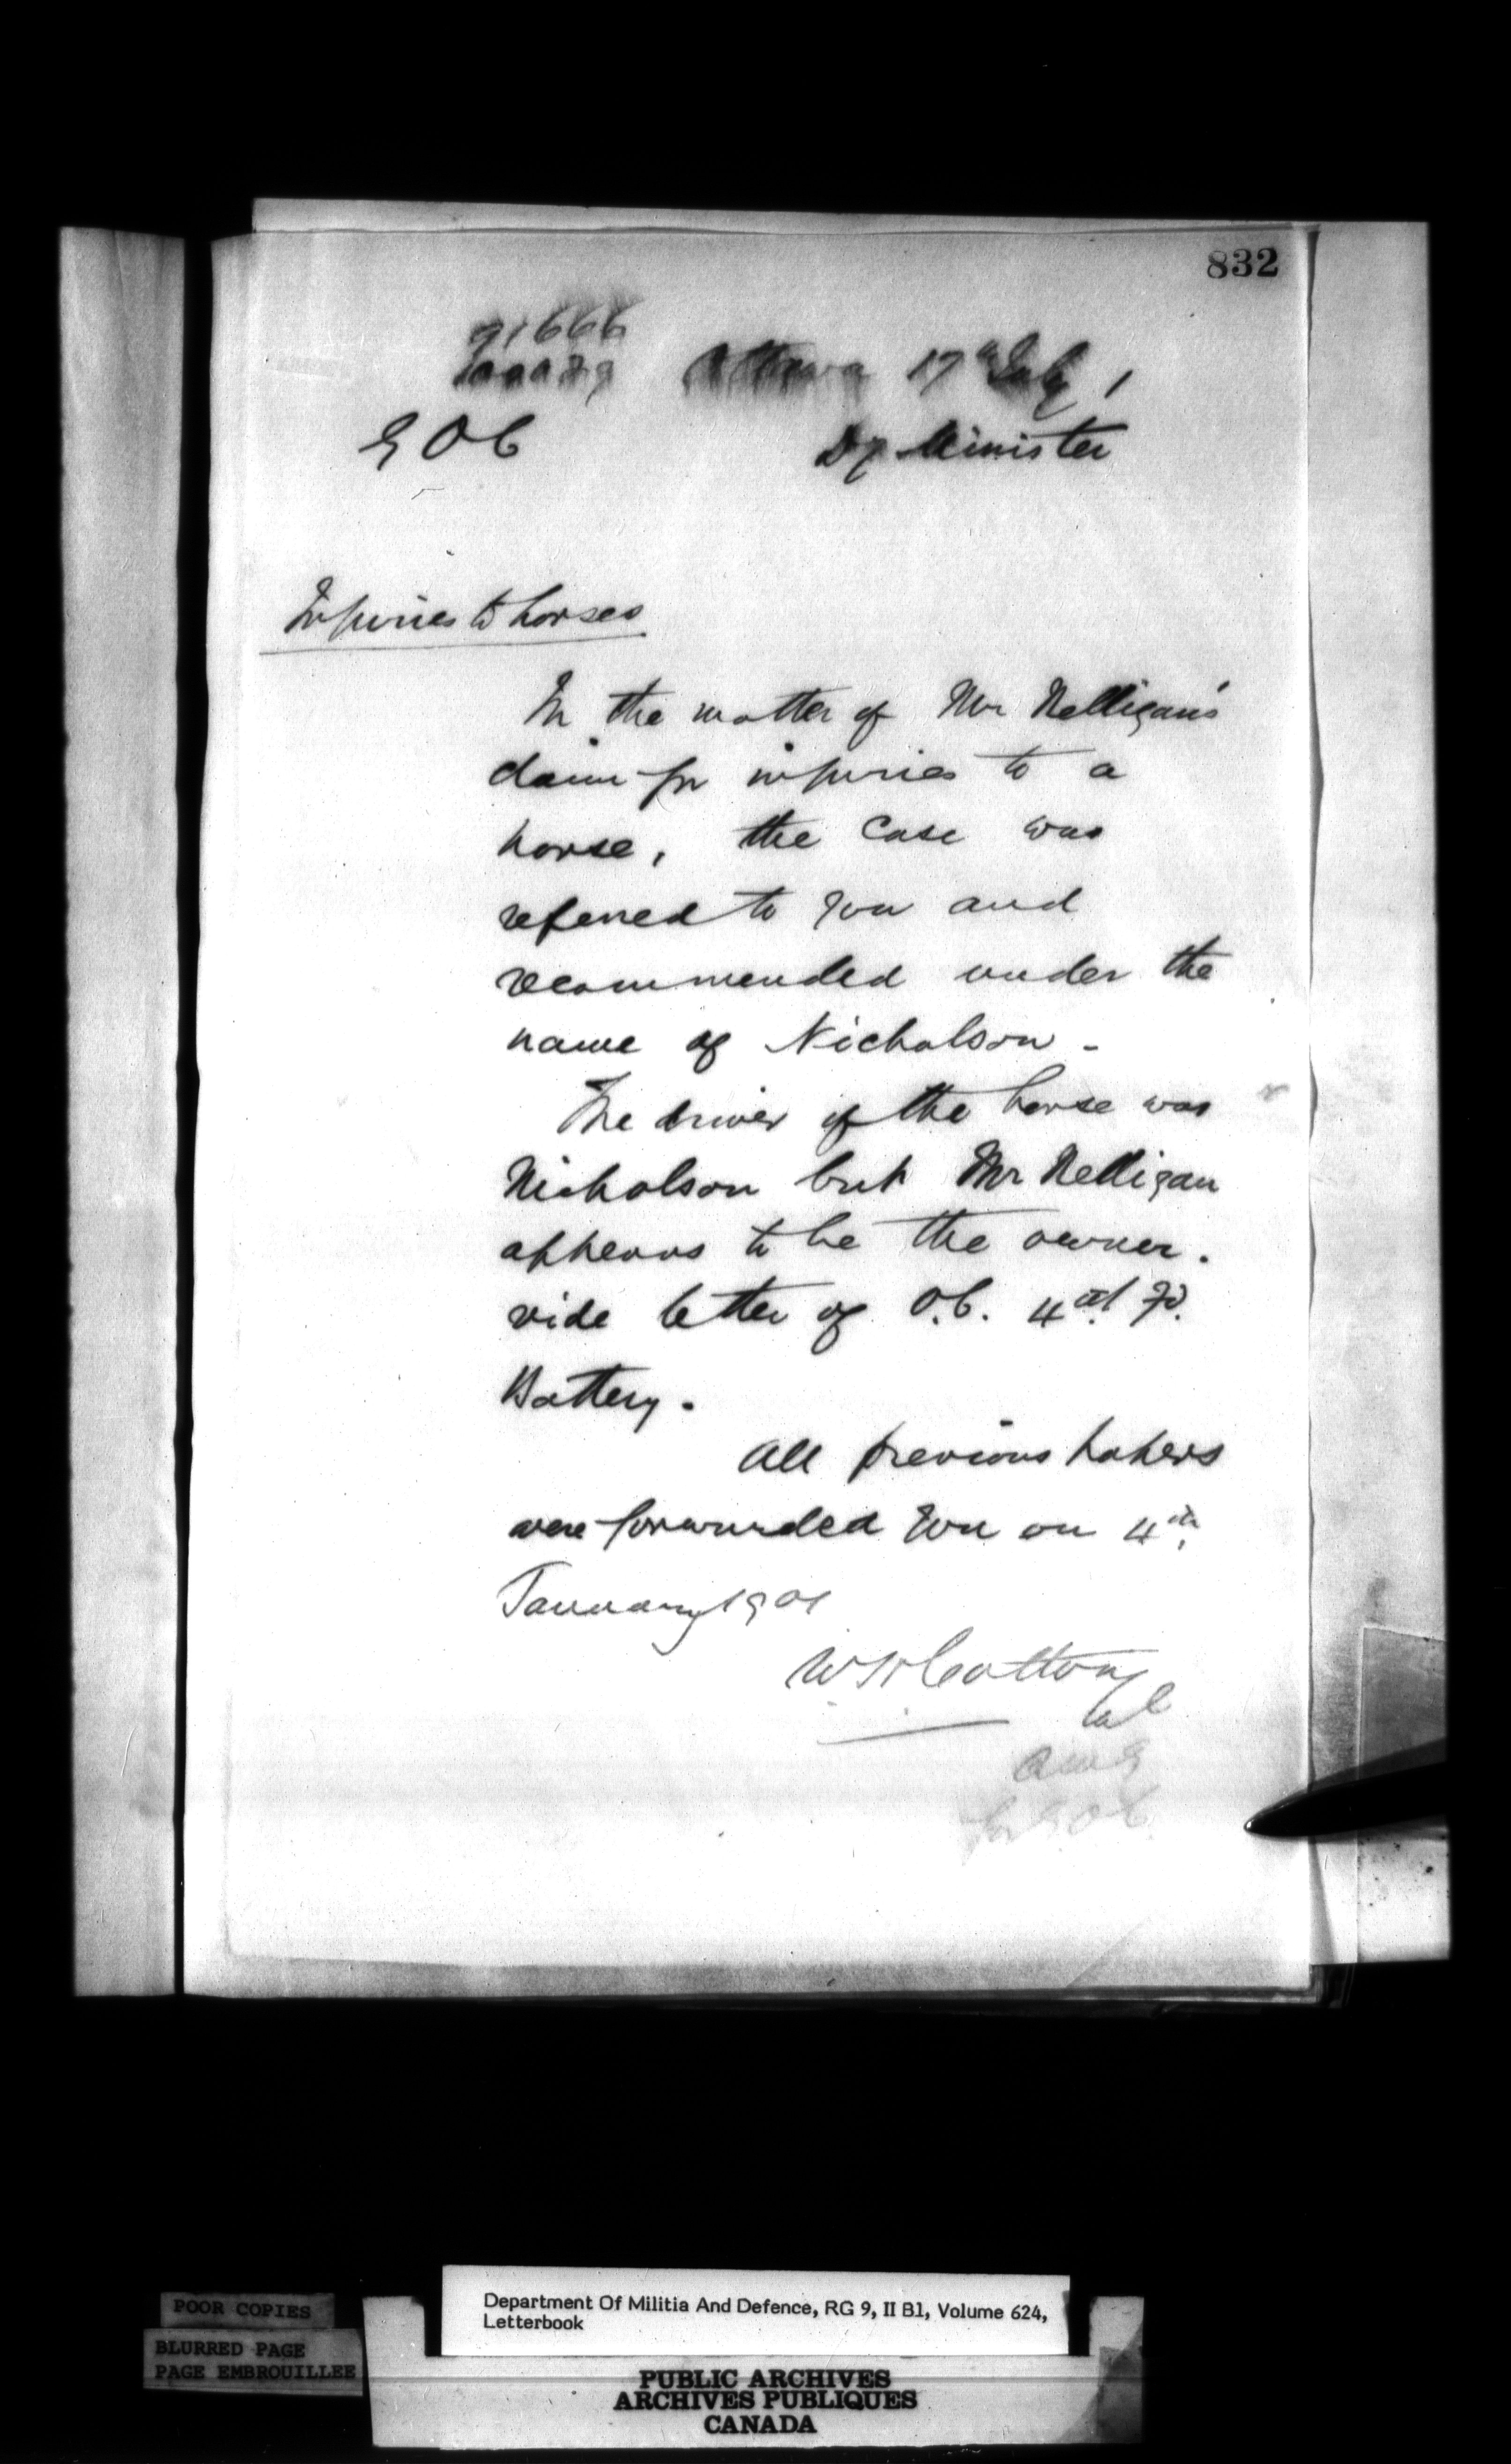 832
91666
Ottawa 17th July 1
G O C Dy Minister
Injuries to horses
In the matter of Mr Nelligan's
claim for injuries to a
horse, the case was
referred to you and
recommended under the
name of Nicholson -
The driver of the horse was
Nicholson but Mr Nelligan
appears to be the owner.
vide letter of O.C. 4th Fd.
Battery.
All previous papers
were forwarded you on 4th
January 1901
W H Cotton
Col
for G O C
POOR COPIES
BLURRED PAGE
PAGE EMBROUILLEE
Department Of Militia And Defence, RG 9, II B1, Volume 624,
Letterbook
PUBLIC ARCHIVES
ARCHIVES PUBLIQUES
CANADA